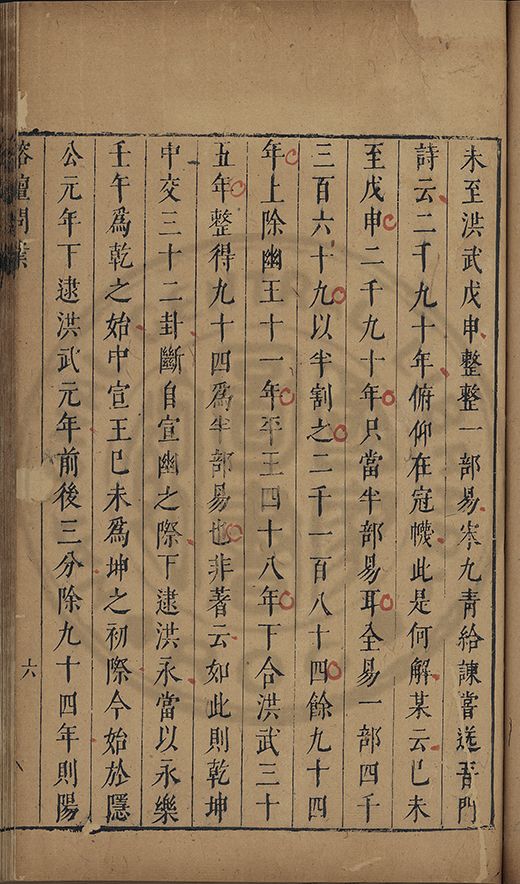 未至洪武戊申整整一部易宋九青給諫嘗送吾門
詩云二千九十年俯仰在冠幾此是何解某云巳未
至戊申二千九十年只當半部易耳全易一部四千
三百六十九以半割之二千一百八十四餘九十四
年上除幽王十一年平王四十八年下合洪武三十
五年整得九十四爲半部易也非著云如此則乾坤
中交三十二卦斷自宣幽之際下逮洪永當以永樂
壬午爲乾之始中宣王巳未爲坤之初際今始於隱
公元年下逮洪武元年前後三分除九十四年則陽
榕壇問業
六